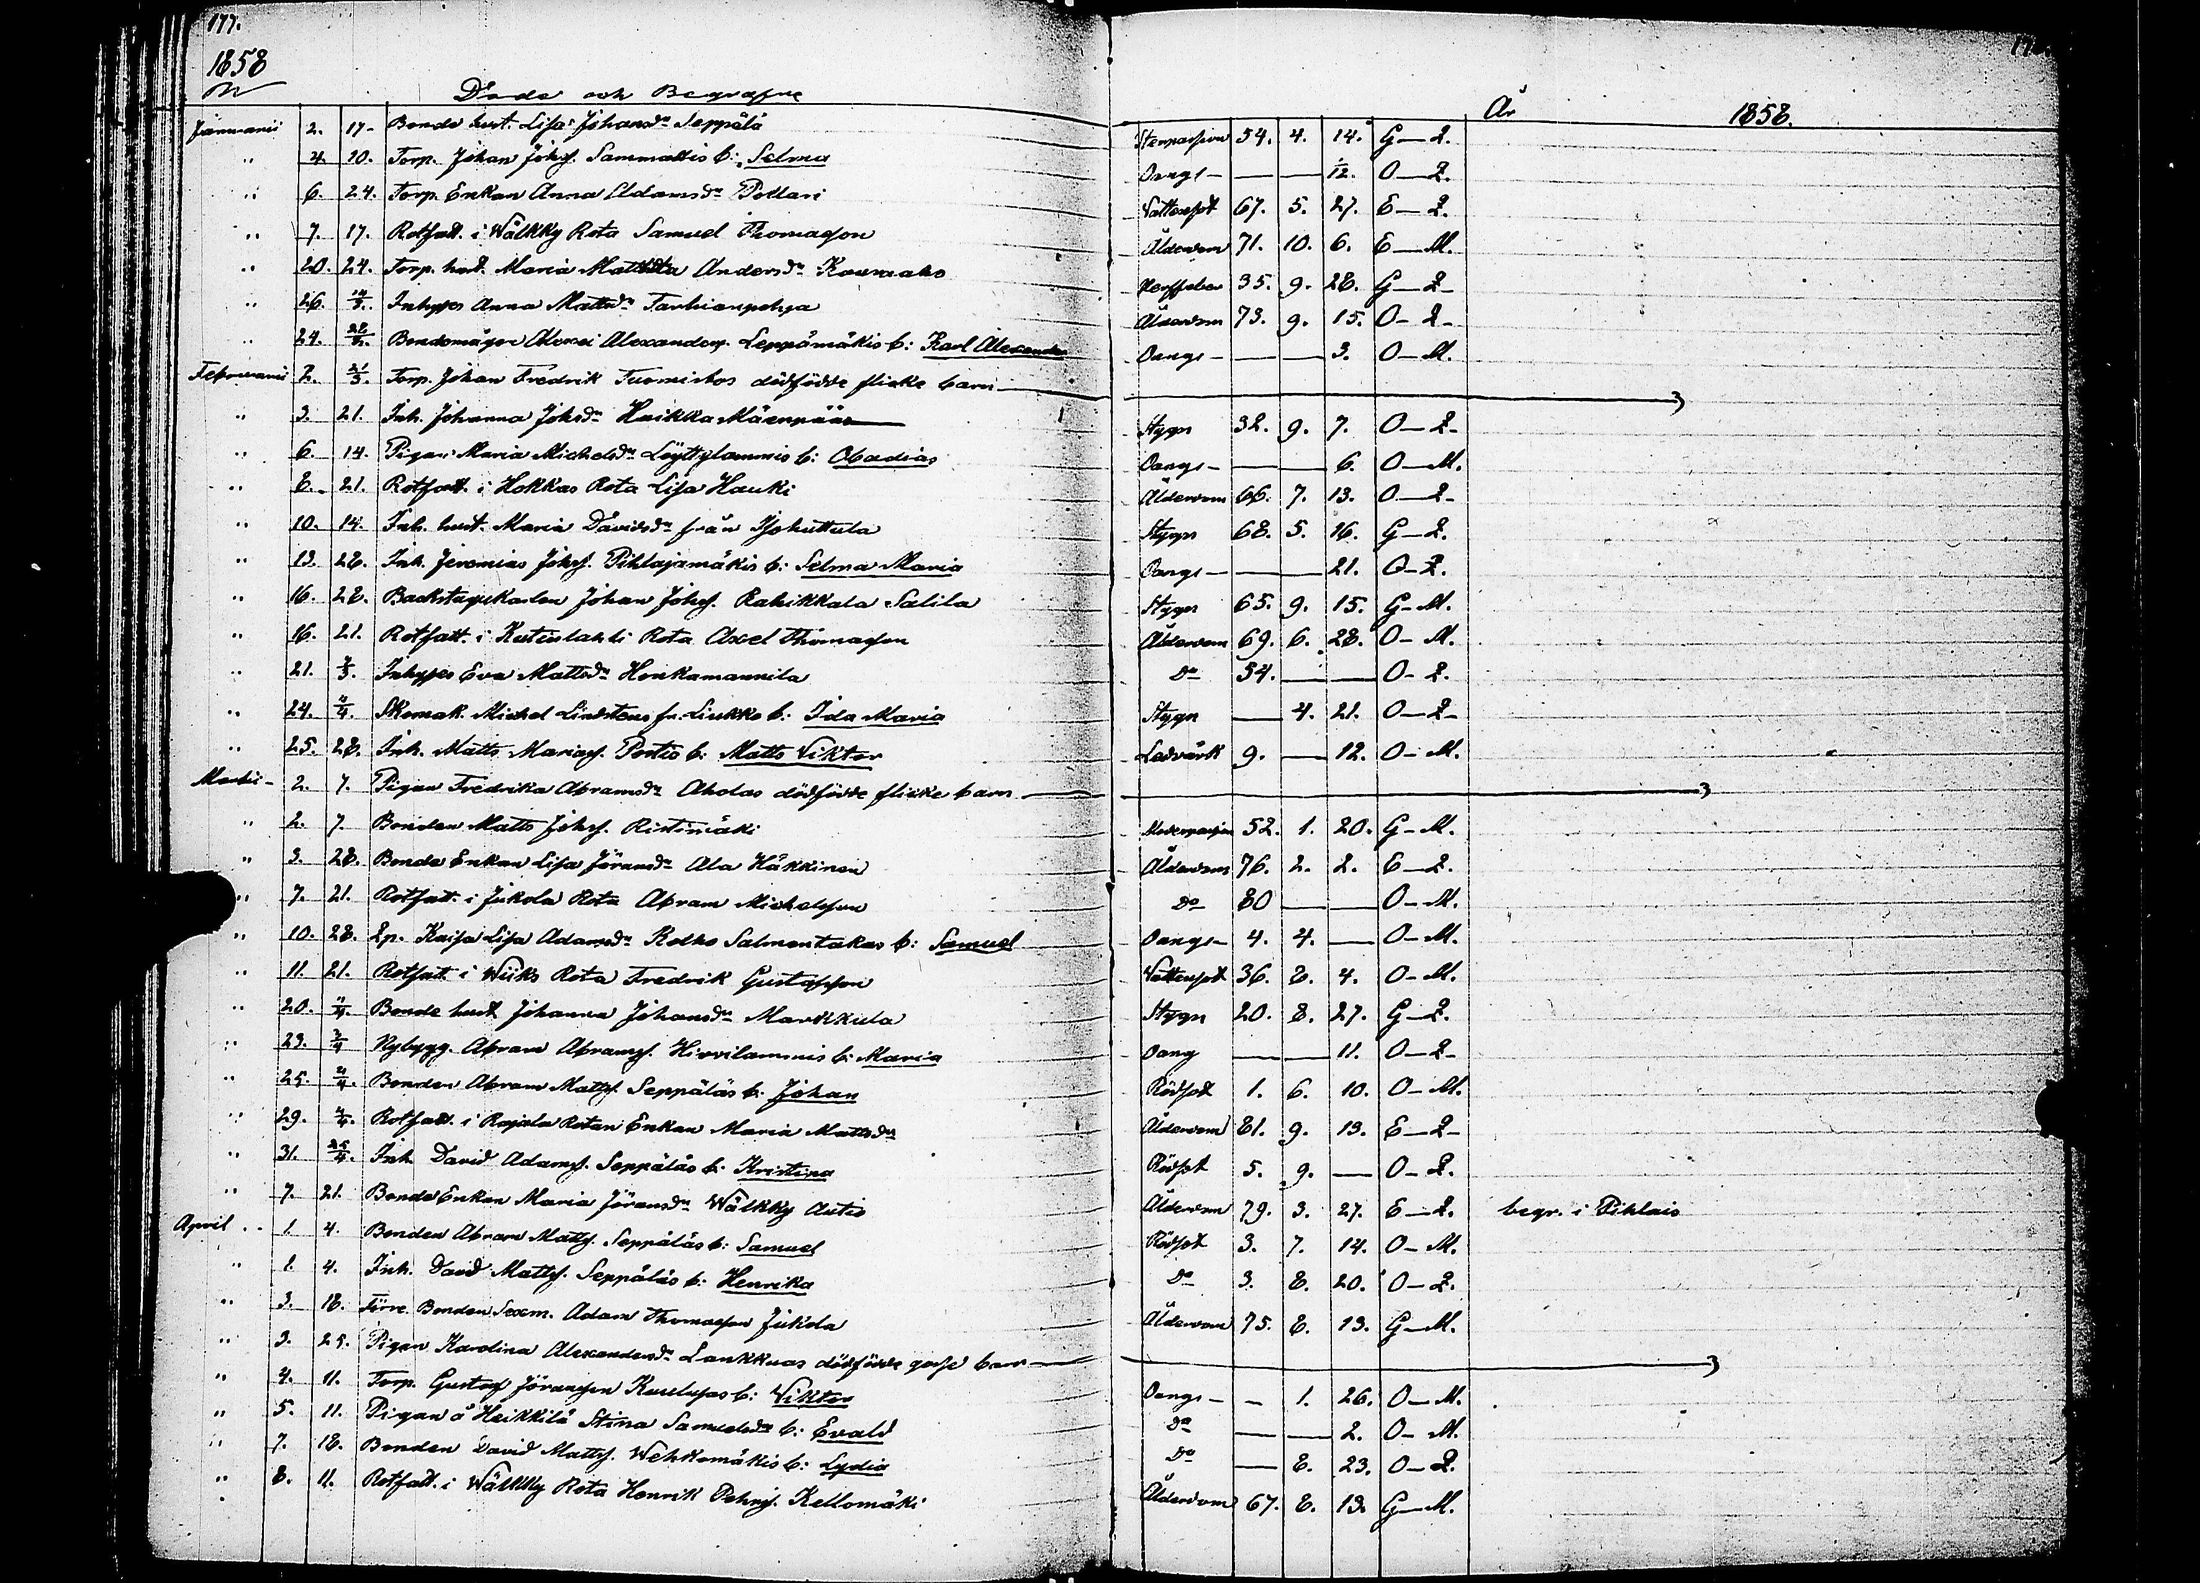 177.
1858
Döde och Begrafne
År 1858.
Januarii 2. 17. Bonde hust. Lisa Johansdr Seppälä Stenpassion 54. 4. 14. G—Q.
" 4. 10. Torp. Johan Johss. Sammallis b: Selma Oangif— — — 1/2. O—Q.
" 6. 24. Torp. Enkan Anna Adamsdr Pollari Vattusot 67. 5. 27. E—Q.
" 7. 17. Rotfatt. i Wälkky Rota Samuel Thomasson Ålderdom 71. 10. 6. E—M.
" 20. 24. Torp. hust. Maria Andersdr 35. 9. 28. G—Q.
" 26. 14/3. Inhyses Anna Mattsdr Tarhianpohja Ålderdom 73. 9. 15. O—Q.
" 24. Bondemågen Alexander. Leppämäkis b: Karl Alexander Oangif— — — 3. O—M.
Februarii 2. 21/3. Torp. Johan Fredrik Tuomistos dödfödde flicke barn
" 3. 21. Inh. Johanna Johsdr Heikka Mäenpää Stygn 32. 9. 7. O—Q.
" 6. 14. Pigan Maria Michelsdr Löyttylammis b: Obadias Oangif— — — 6. O—M.
" 8. 21. Rotfatt. i Hokkas Rota Lisa Hauki Ålderdom 66. 7. 13. O—Q.
" 10. 14. Inh. hust. Maria Davidsdr från Stygn 68. 5. 16. G—Q.
" 13. 28. Inh. Jeremias Johss. Pihlajamäkis b: Selma Maria Oangif— — — 21. O—Q.
" 16. 28. Backstugukarlen Johan Johss. Rahikkala Salila Stygn 65. 9. 15. G—M.
" 16. 21. Rotfatt. i Kuivalahti Rota Axel Thomasson Ålderdom 69. 6. 28. O—M.
" 21. 7/3. Inhyses Eva Mattsdr Honkamannila Do 54. — — O—Q.
" 24. 4/4. Skomak. Michel Lindstens fr. Liukko b: Ida Maria Stygn — 4. 21. O—Q.
" 25. 28. Inh. Matts Mariass. Pentis b: Matts Viktor Ledvärk 9. — 12. O—M.
Martii 2. 7. Pigan Fredrika Abramsdr Aholas dödfödde flicke barn
" 2. 7. Bonden Matts Johss. Ristimäki 52. 1. 20. G—M.
" 3. 28. Bonde Enkan Lisa Jöransdr Ala Häkkinen Ålderdom 76. 2. 2. E—Q.
" 7. 21. Rotfatt. i Jukola Rota Abram Michelsson Do 80 — — O—M.
" 10. 28. Qp. Kaisa Lisa Adamsdr Kotko Salmentakas b: Samuel Oangif— 4. 4. — O—M.
" 11. 21. Rotfatt. i Wiiks Rota Fredrik Gustafsson Vattusot 36. 8. 4. O—M.
" 20. 11/4. Bonde hust Johanna Johansdr Markkula Stygn 20. 8. 27. G—Q.
" 23. 2/4 Nybygg. Abram Abramss. Hirvilammis b: Maria Oangif — — 11. O—Q.
" 25. 4/4. Bonden Abram Mattss. Seppäläs b: Johan Rödsot 1. 6. 10. O—M.
" 29. 4/4. Rotfatt. i Rajala Rotan Enkan Maria Mattsdr Ålderdom 81. 9. 13. E—Q.
" 31. 25/4. Inh. David Adamss. Seppäläs b: Kristina Rödsot 5. 9. — O—Q.
" 7. 21. Bonde Enkan Maria Jöransdr Wälkky Autio Ålderdom 79. 3. 27. E—Q. begr. i Pihlais
April 1. 4. Bonden Abram Mattss. Seppäläs b: Samuel Rödsot 3. 7. 14. O—M.
" 1. 4. Inh. David Mattss. Seppäläs b: Henrika Do 3. 8. 20. O—Q.
" 3. 18. Förre Bonden Sexm. Adam Thomasson Jukola Ålderdom 75. 8. 13. G—M.
" 3. 25. Pigan Karolina Alexandersdr Lankkuas dödfödde gosse barn
" 4. 11. Torp. Gustaf Jöransson b: Viktor Oangif— — 1. 26. O—M.
" 5. 11. Pigan å Heikkilä Stina Samuelsdr b: Evald Do — — 2. O—M.
" 7. 18. Bonden David Mattss. Wehkomäkis b: Lydia Do — 8. 23. O—Q.
" 8. 11. Rotfatt. i Wälkky Rota Henrik Pehrss. Kellomäki Ålderdom 67. 8. 13. G—M.